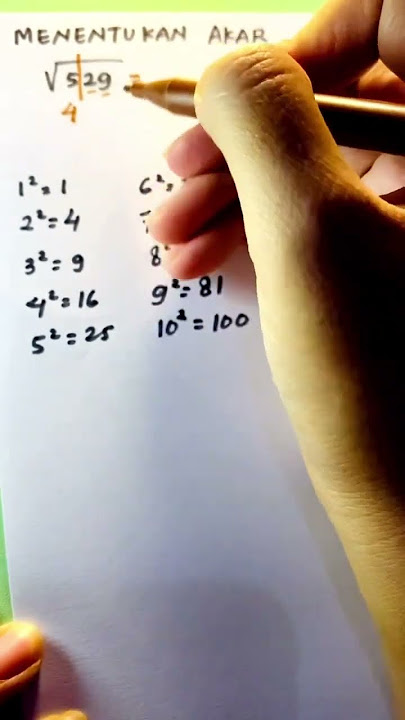 MENENTUKAN AKAR
√5|29 =
4
1² = 1
2² = 4
3² = 9
4² = 16
5² = 25
6² =
8²
9² = 81
10² = 100